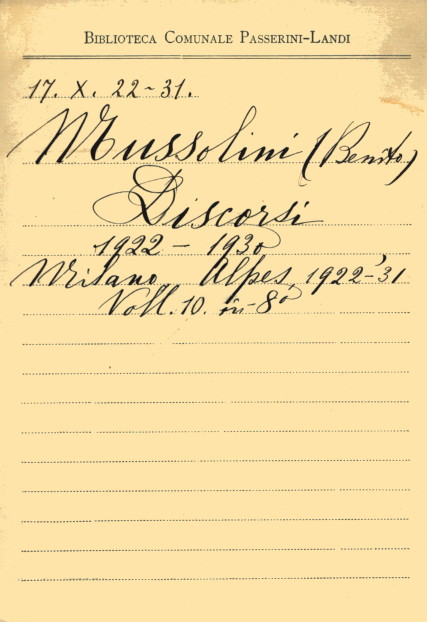 BIBLIOTECA COMUNALE PASSERINI-LANDI
17. X. 22-31.
Mussolini (Benito)
Discorsi
1922 - 1930
Milano, Alpes, 1922-'31
Voll. 10. in-8°